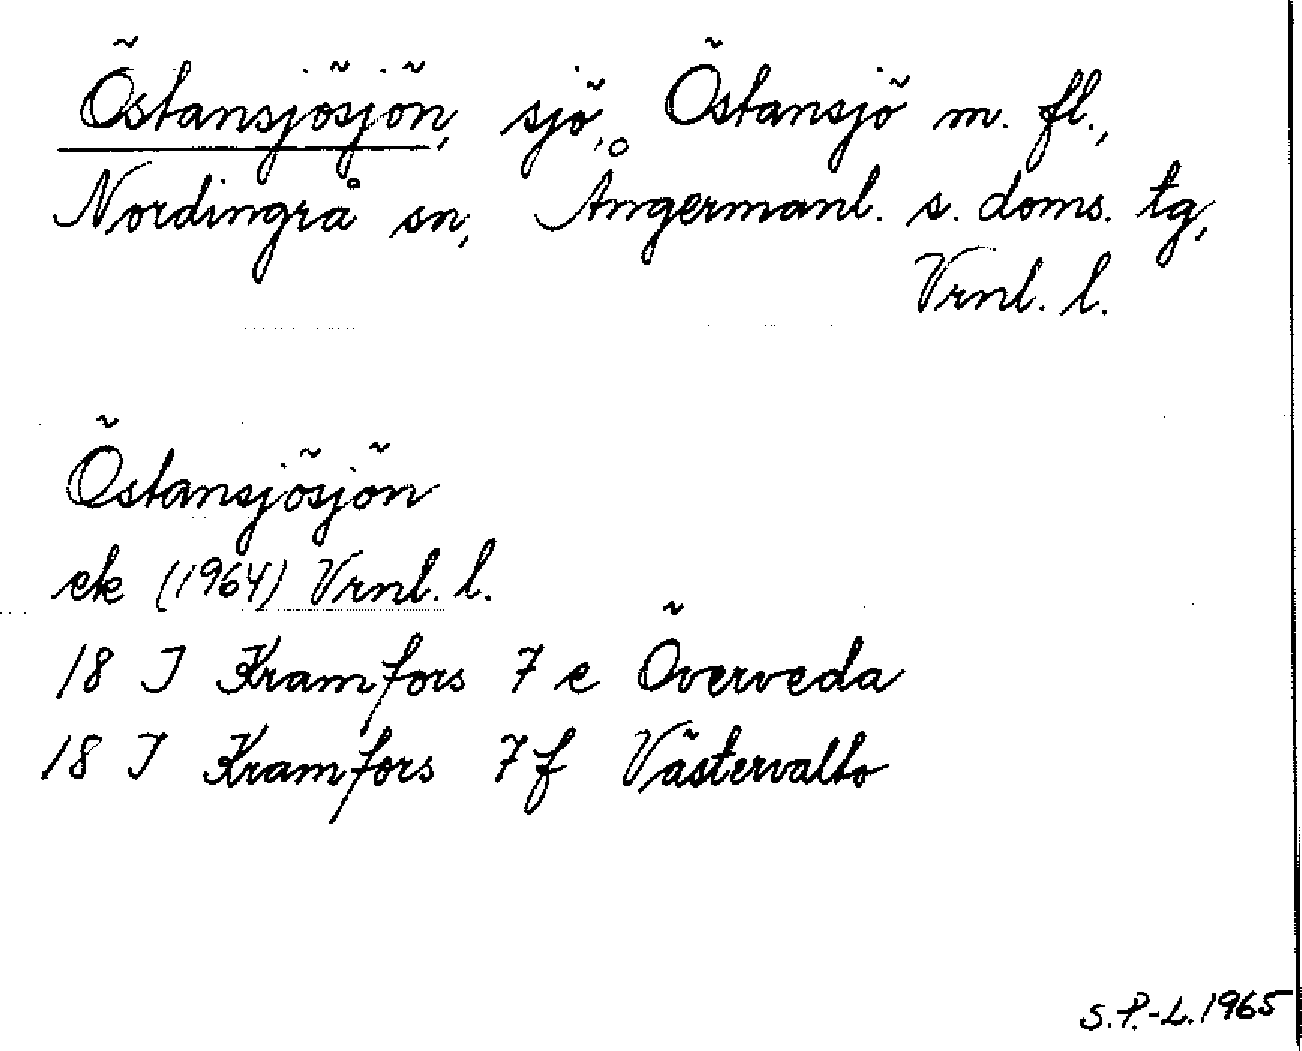 Östansjösjön, sjö, Östansjö m. fl.,
Nordingrå sn, Ångermanl. s. doms. tg,
Vrnl. l.
Östansjösjön
ek (1964) Vrnl. l.
18 I Kramfors 7 e Överveda
18 I Kramfors 7 f Västervalto
S.P.-L. 1965